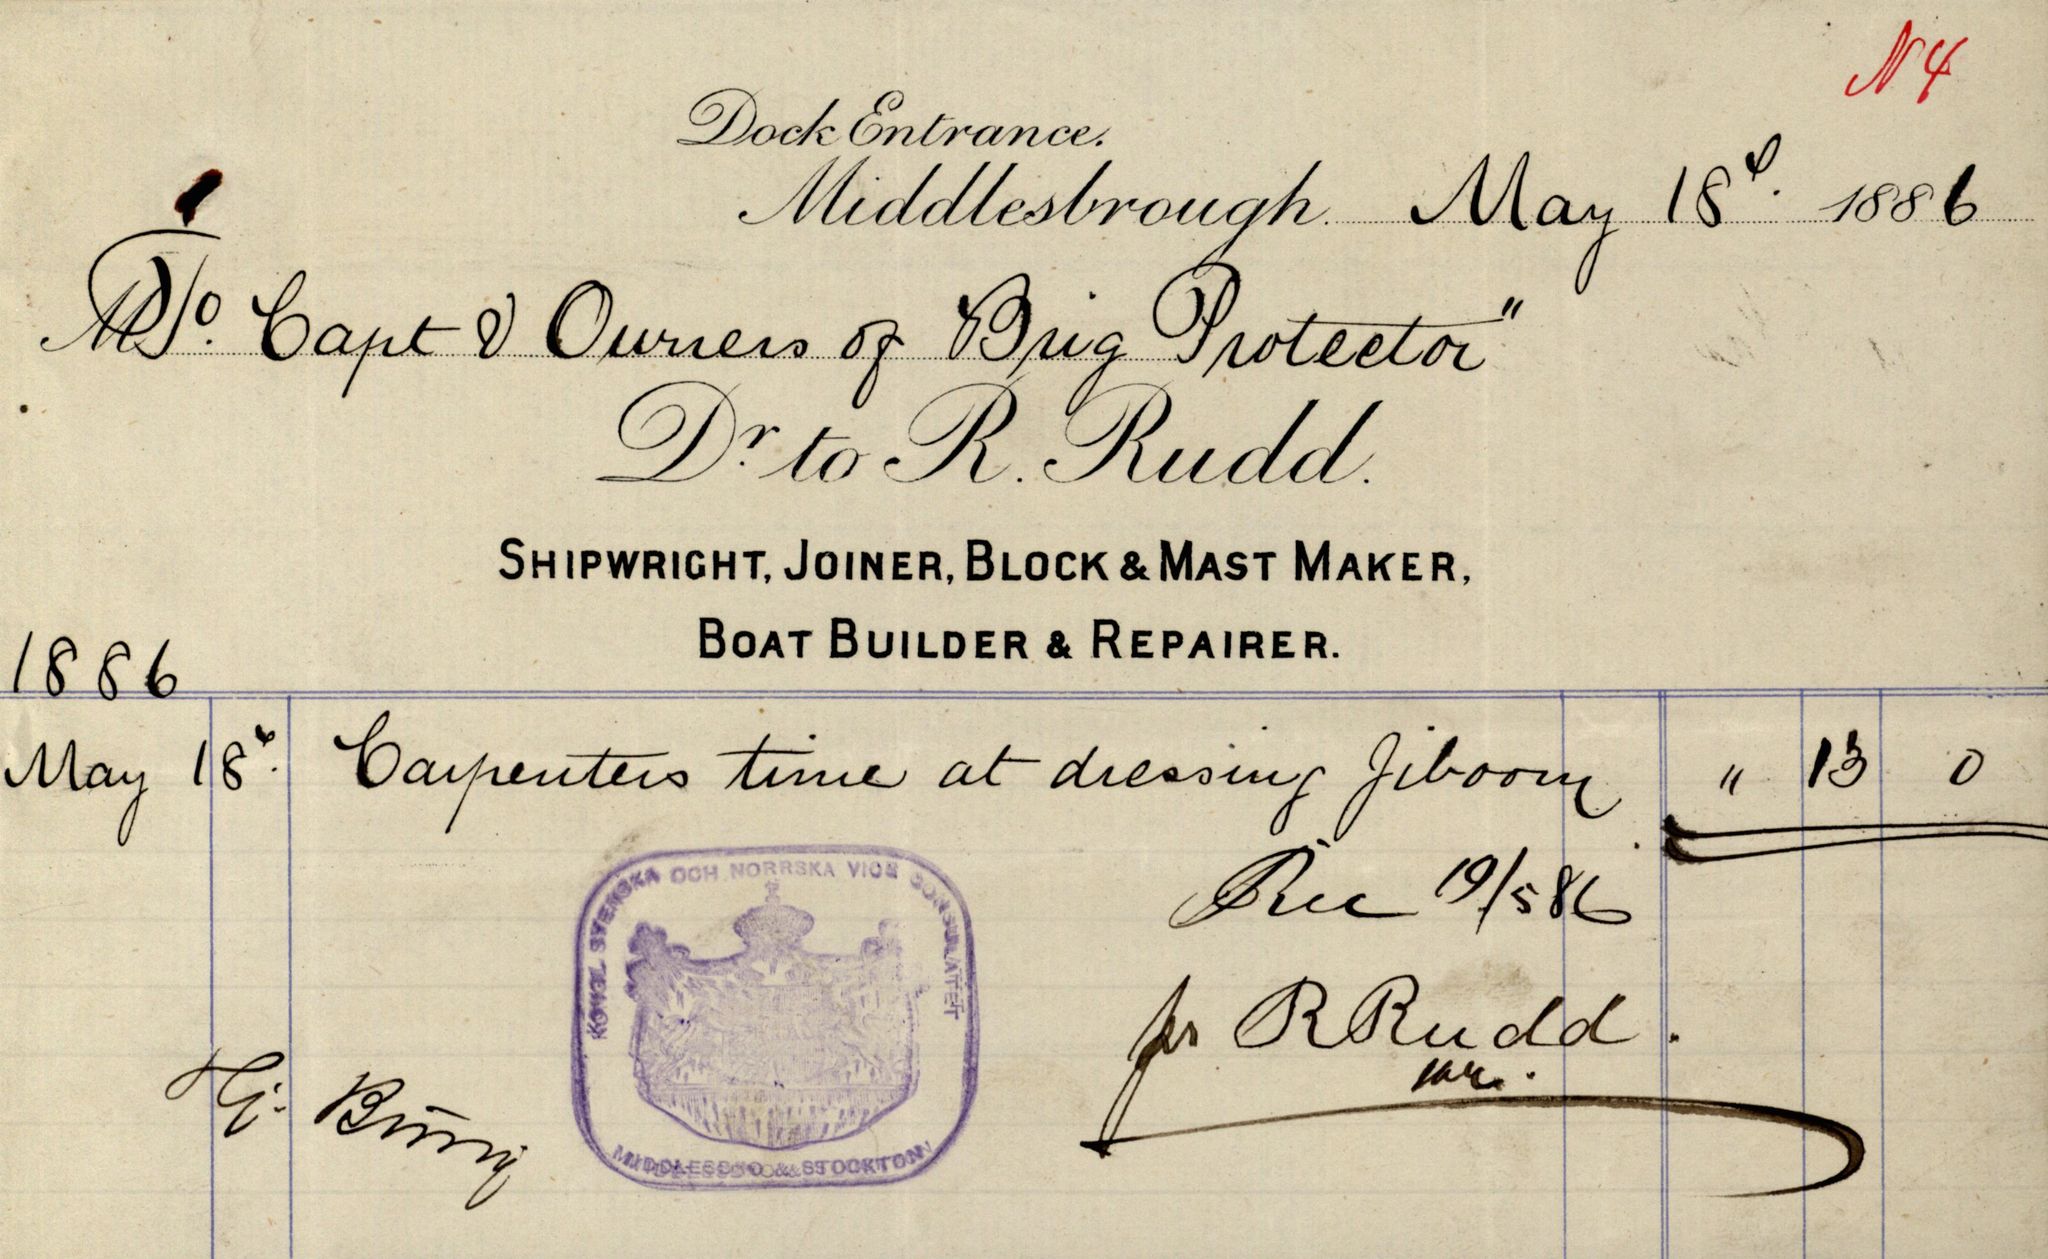 N 4
Dock Entrance.
Middlesbrough. May 18th. 1886
To. Capt & Owners of Brig Protector"
Dr. to R. Rudd.
SHIPWRIGHT, JOINER, BLOCK & MAST MAKER,
BOAT BUILDER & REPAIRER.
1886
May 18th. Carpenters time at dressing Jiboom " 13 0
Rec 19/5 86
pr R Rudd.
KONGL SVENSKA OCH NORRSKA VICE CONSULATET
MIDDLESBRO & STOCKTON
Hj.